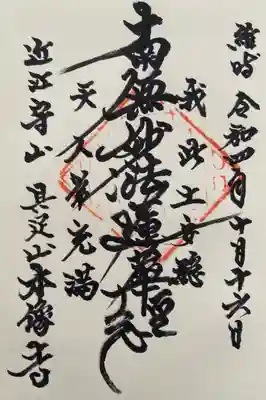 維時 令和四年十月十六日
我此土安穏
南無妙法蓮華經
天人常充満
近江守山 具足山本像寺